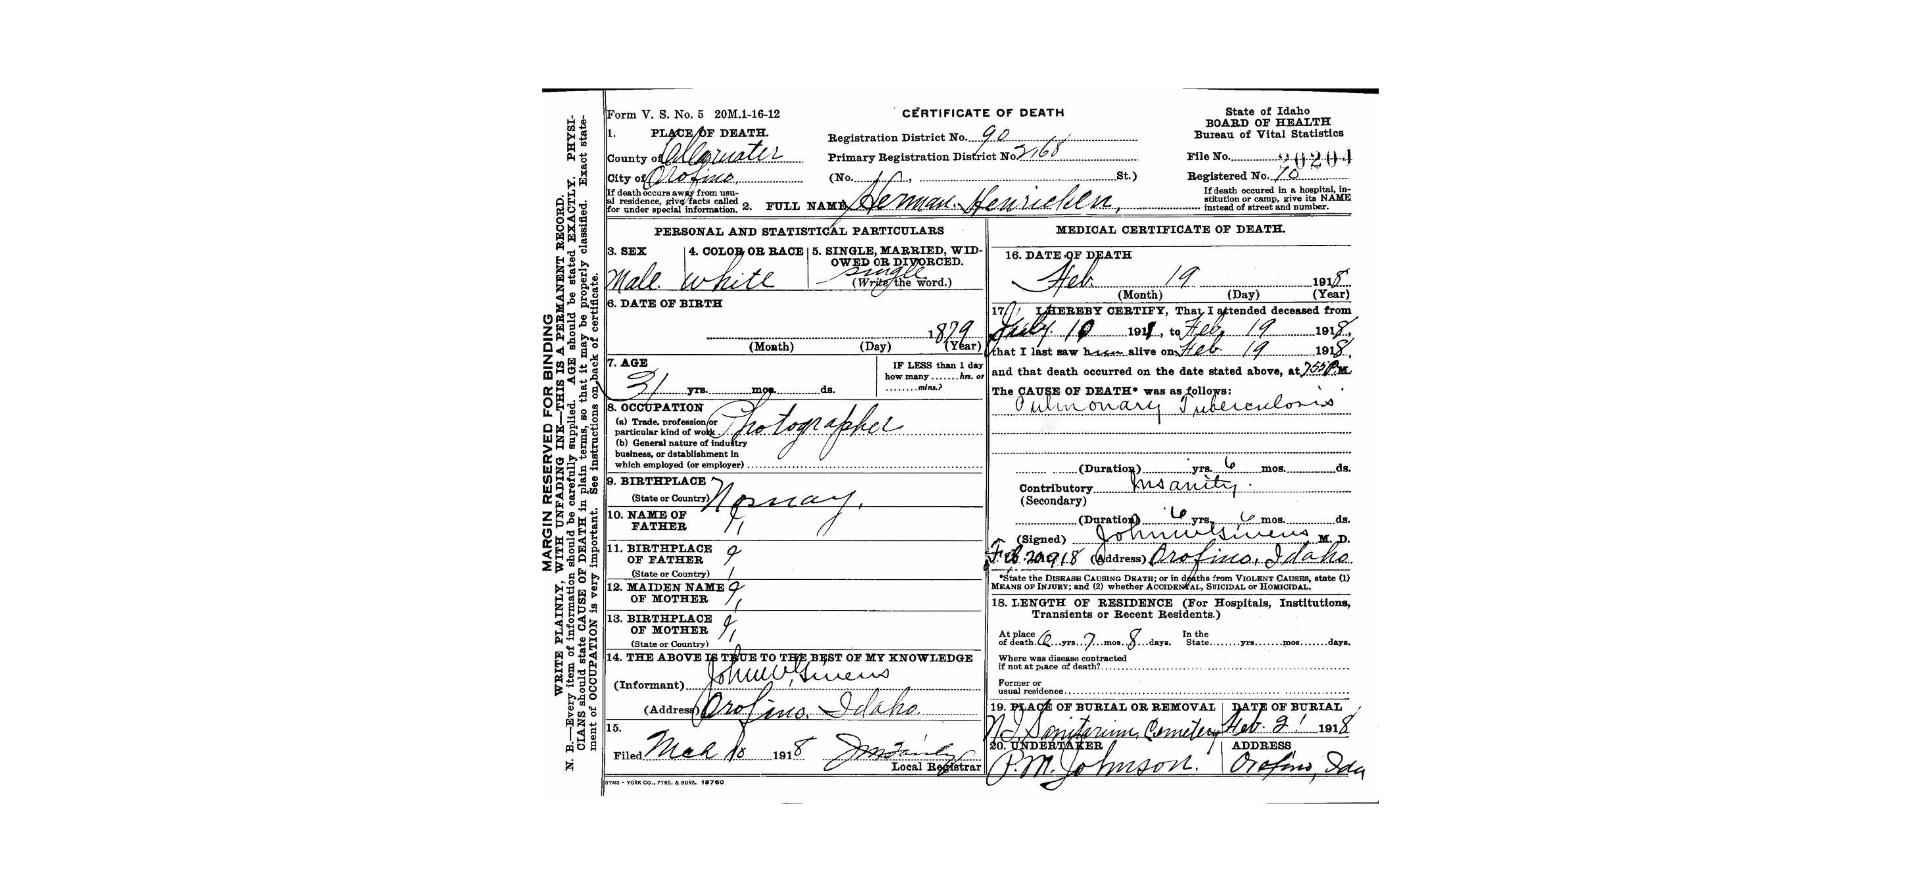 MARGIN RESERVED FOR BINDING
WRITE PLAINLY, WITH UNFADING INK—THIS IS A PERMANENT RECORD.
N. B.—Every item of information should be carefully supplied. AGE should be stated EXACTLY. PHYSI-
CIANS should state CAUSE OF DEATH in plain terms, so that it may be properly classified. Exact state-
ment of OCCUPATION is very important. See instructions on back of certificate.
Form V. S. No. 5 20M.1-16-12
CERTIFICATE OF DEATH
State of Idaho
BOARD OF HEALTH
Bureau of Vital Statistics
1. PLACE OF DEATH.
County of Clearwater
City of Orofino
Registration District No. 90
Primary Registration District No. 2168
(No. , St.)
File No. 20204
Registered No. 70
If death occurs away from usu-
al residence, give facts called
for under special information.
2. FULL NAME Herman Henricken,
If death occured in a hospital, in-
stitution or camp, give its NAME
instead of street and number.
PERSONAL AND STATISTICAL PARTICULARS
3. SEX
Male.
4. COLOR OR RACE
White
5. SINGLE, MARRIED, WID-
OWED OR DIVORCED.
single
(Write the word.)
6. DATE OF BIRTH
1879
(Month) (Day) (Year)
7. AGE
31 yrs. mos. ds.
IF LESS than 1 day
how many ....... hrs. or
........ mins.?
8. OCCUPATION
(a) Trade, profession or
particular kind of work Photographer
(b) General nature of industry
business, or dstablishment in
which employed (or employer)
9. BIRTHPLACE
(State or Country) Norway.
10. NAME OF
FATHER ?
11. BIRTHPLACE
OF FATHER ?
(State or Country)
12. MAIDEN NAME
OF MOTHER ?
13. BIRTHPLACE
OF MOTHER ?
(State or Country)
14. THE ABOVE IS TRUE TO THE BEST OF MY KNOWLEDGE
(Informant) John W. Givens
(Address) Orofino, Idaho.
15.
Filed Mch 1918
Local Registrar
SYMS - YORK CO., PTRS. & BDRS. 19760
MEDICAL CERTIFICATE OF DEATH.
16. DATE OF DEATH
Feb. 19 1918
(Month) (Day) (Year)
17. I HEREBY CERTIFY, That I attended deceased from
July 10 1911, to Feb. 19 1918,
that I last saw him alive on Feb. 19 1918,
and that death occurred on the date stated above, at 7:55 P.M.
The CAUSE OF DEATH* was as follows:
Pulmonary Tuberculosis
(Duration) yrs. 6 mos. ds.
Contributory Insanity.
(Secondary)
(Duration) 6 yrs. 6 mos. ds.
(Signed) John W. Givens M. D.
Feb. 20, 1918 (Address) Orofino, Idaho
*State the DISEASE CAUSING DEATH; or in deaths from VIOLENT CAUSES, state (1)
MEANS OF INJURY; and (2) whether ACCIDENTAL, SUICIDAL or HOMICIDAL.
18. LENGTH OF RESIDENCE (For Hospitals, Institutions,
Transients or Recent Residents.)
At place
of death 6 yrs. 7 mos. 8 days.
In the
State yrs. mos. days.
Where was disease contracted
if not at place of death?
Former or
usual residence
19. PLACE OF BURIAL OR REMOVAL
N.I. Sanitarium, Cemetery
DATE OF BURIAL
Feb. 21 1918
20. UNDERTAKER
P.M. Johnson.
ADDRESS
Orofino, Ida